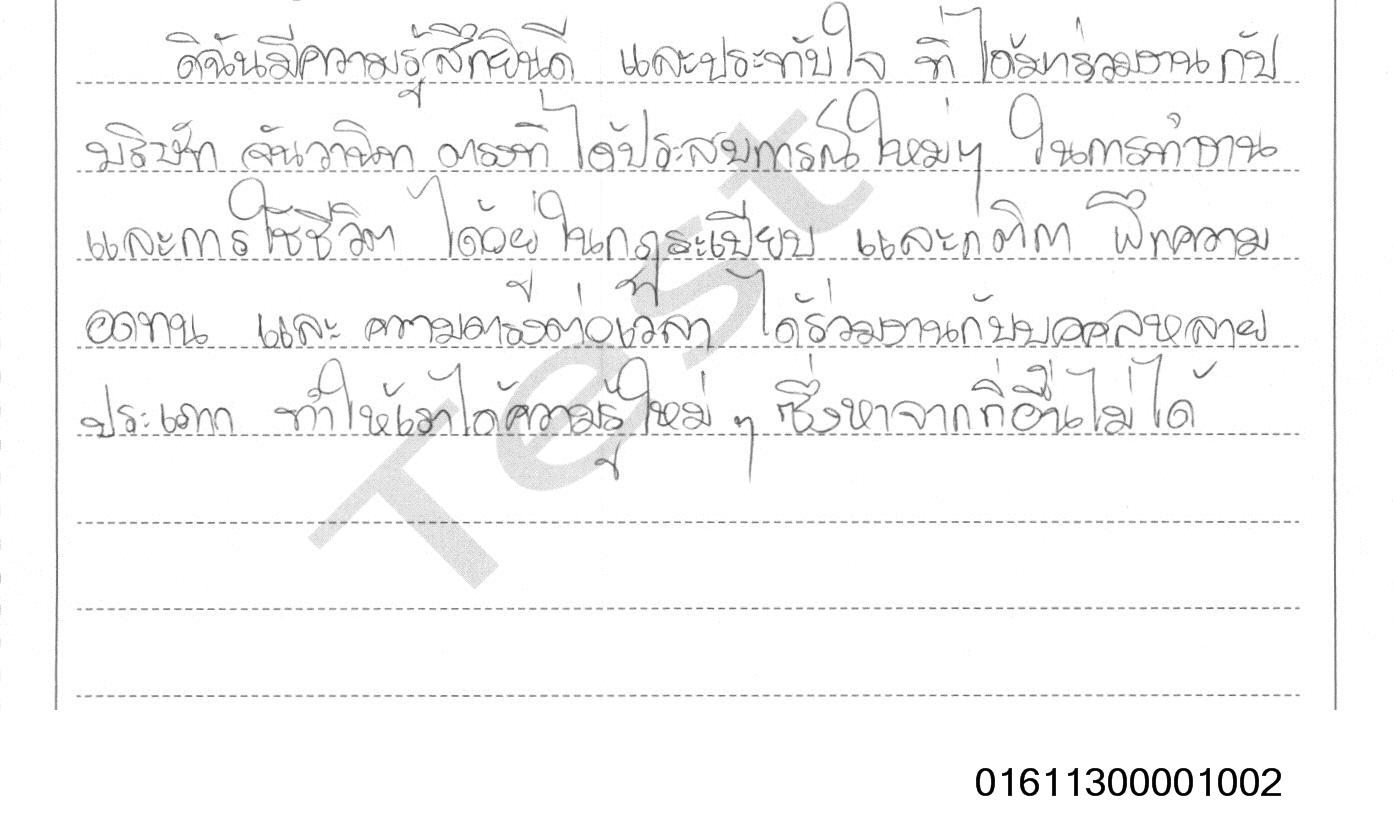 ดิฉันมีความรู้สึกยินดี และประทับใจ ที่ได้มาร่วมงานกับ
บริษัท จันวานิท ตรงที่ได้ประสบการณ์ใหม่ๆ ในการทำงาน
และการใช้ชีวิต ได้อยู่ในกฎระเบียบ และกติกา ฝึกความ
อดทน และ ความตรงต่อเวลา ได้ร่วมงานกับบุคคลหลาย
ประเภท ทำให้เราได้ความรู้ใหม่ ๆ ซึ่งหาจากที่อื่นไม่ได้
Test
01611300001002